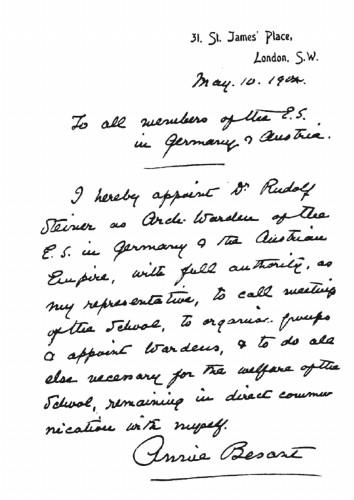 31. St. James' Place,
London, S.W.
May. 10. 1904.
To all members of the E.S.
in Germany & Austria.
I hereby appoint Dr. Rudolf
Steiner as Arch-Warden of the
E.S. in Germany & the Austrian
Empire, with full authority, as
my representative, to call meetings
of the School, to organise groups
& appoint Wardens, & to do all
else necessary for the welfare of the
School, remaining in direct commu
nication with myself.
Annie Besant